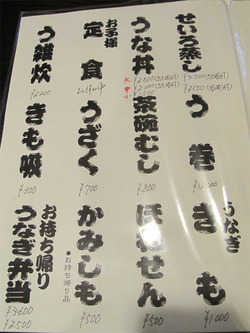 せいろ蒸し
う巻き
うなぎ
きも
¥1,000
うな丼
大 中 小
茶碗むし
¥300
ほねせん
¥500
お子様
定食
うざく
¥700
かみしも
¥500
●お持ち帰り品
う雑炊
きも吸
¥300
お持ち帰り
うなぎ弁当
¥3600
¥2500